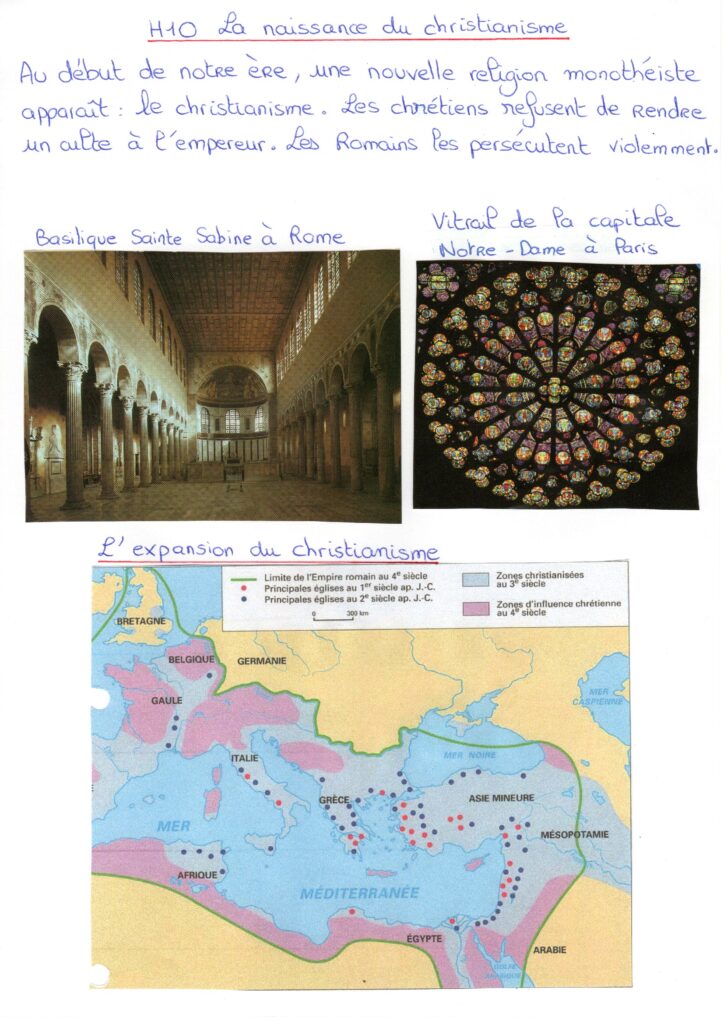 H10 La naissance du christianisme
Au début de notre ère, une nouvelle religion monothéiste
apparaît : le christianisme. Les chrétiens refusent de rendre
un culte à l'empereur. Les Romains les persécutent violemment.
Basilique Sainte Sabine à Rome
Vitrail de la capitale
Notre-Dame à Paris
L'expansion du christianisme
Limite de l'Empire romain au 4e siècle
Principales églises au 1er siècle ap. J.-C.
Principales églises au 2e siècle ap. J.-C.
0 300 km
Zones christianisées
au 3e siècle
Zones d'influence chrétienne
au 4e siècle
BRETAGNE
BELGIQUE
GERMANIE
GAULE
MER
CASPIENNE
ITALIE
MER NOIRE
GRÈCE
ASIE MINEURE
MER
MÉSOPOTAMIE
AFRIQUE
MÉDITERRANÉE
ÉGYPTE
ARABIE
GOLFE